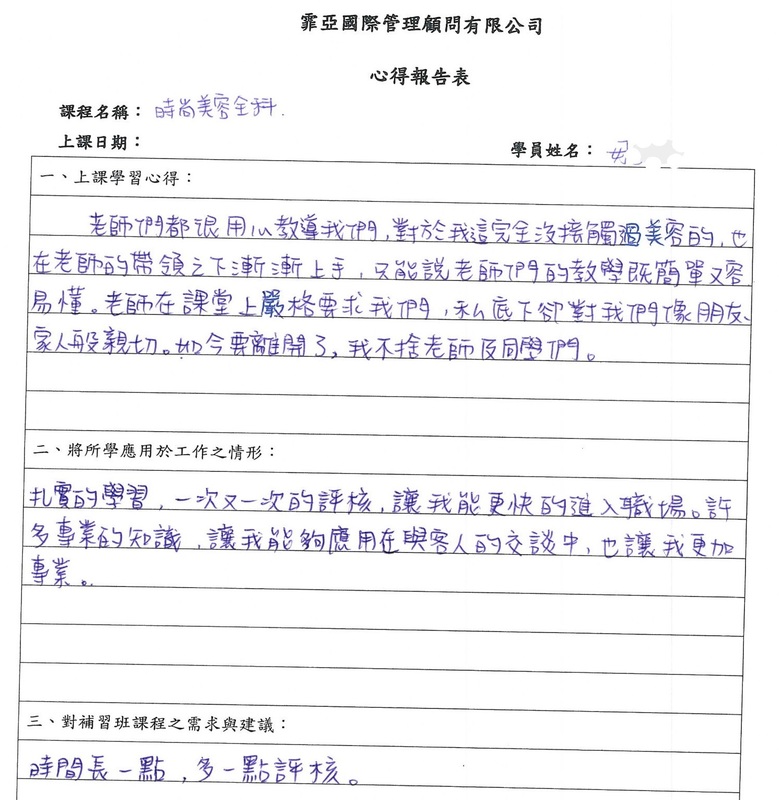 霏亞國際管理顧問有限公司
心得報告表
課程名稱：時尚美容全科.
上課日期：
學員姓名：
一、上課學習心得：
老師們都很用心教導我們,對於我這完全沒接觸過美容的,也
在老師的帶領之下漸漸上手,只能說老師們的教學既簡單又容
易懂。老師在課堂上嚴格要求我們,私底下卻對我們像朋友、
家人般親切。如今要離開了,我不捨老師及同學們。
二、將所學應用於工作之情形：
扎實的學習,一次又一次的評核,讓我能更快的進入職場。許
多專業的知識,讓我能夠應用在與客人的交談中,也讓我更加
專業。
三、對補習班課程之需求與建議：
時間長一點,多一點評核。